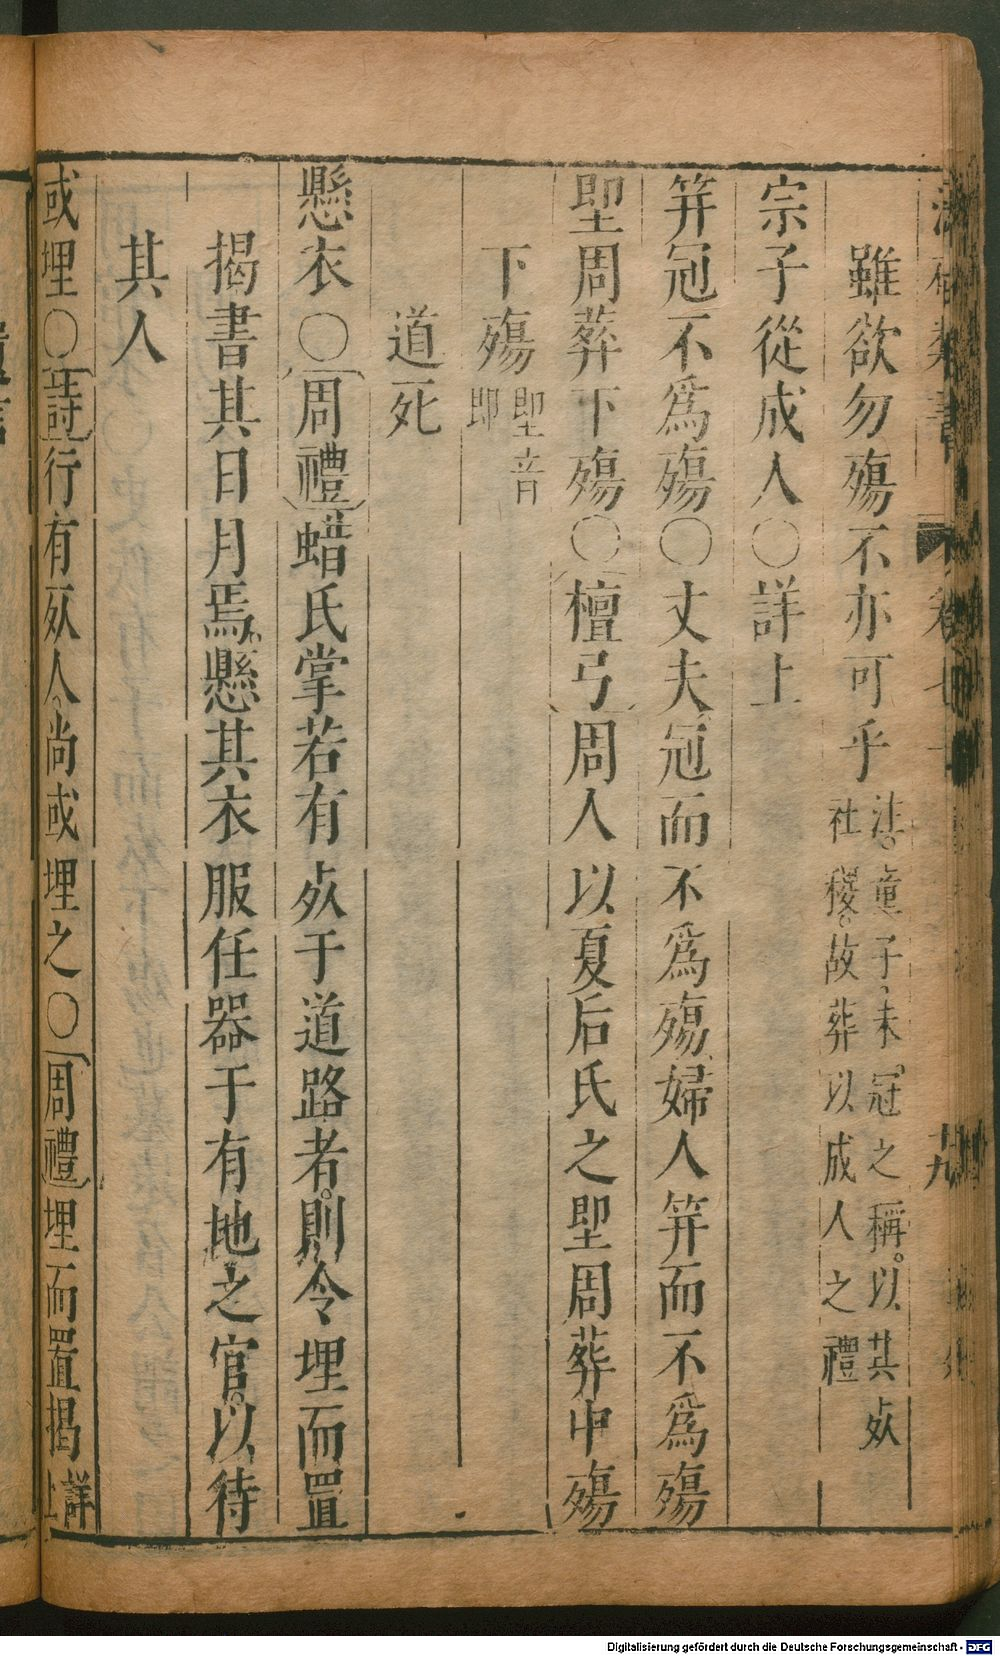 雖欲勿殤不亦可乎 註。童子、未冠之稱。以其死社稷。故葬以成人之禮
宗子從成人〇詳上
筓冠不爲殤〇丈夫冠而不爲殤、婦人筓而不爲殤
堲周葬下殤〇檀弓周人以夏后氏之堲周葬中殤
下殤 堲音即
道死
懸衣〇周禮蜡氏掌若有死于道路者。則令埋而置
揭書其日月焉、懸其衣服任器于有地之官。以待
其人
或埋〇詩行有死人。尚或埋之〇周禮埋而置揭 詳上
Digitalisierung gefördert durch die Deutsche Forschungsgemeinschaft - DFG